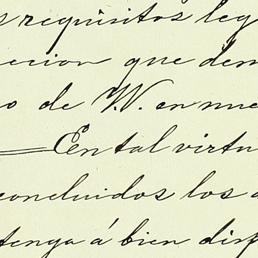 s requisitos leg
ecion que dem
o de W. en nue
En tal virtu
concluidos los a
tenga á bien disp